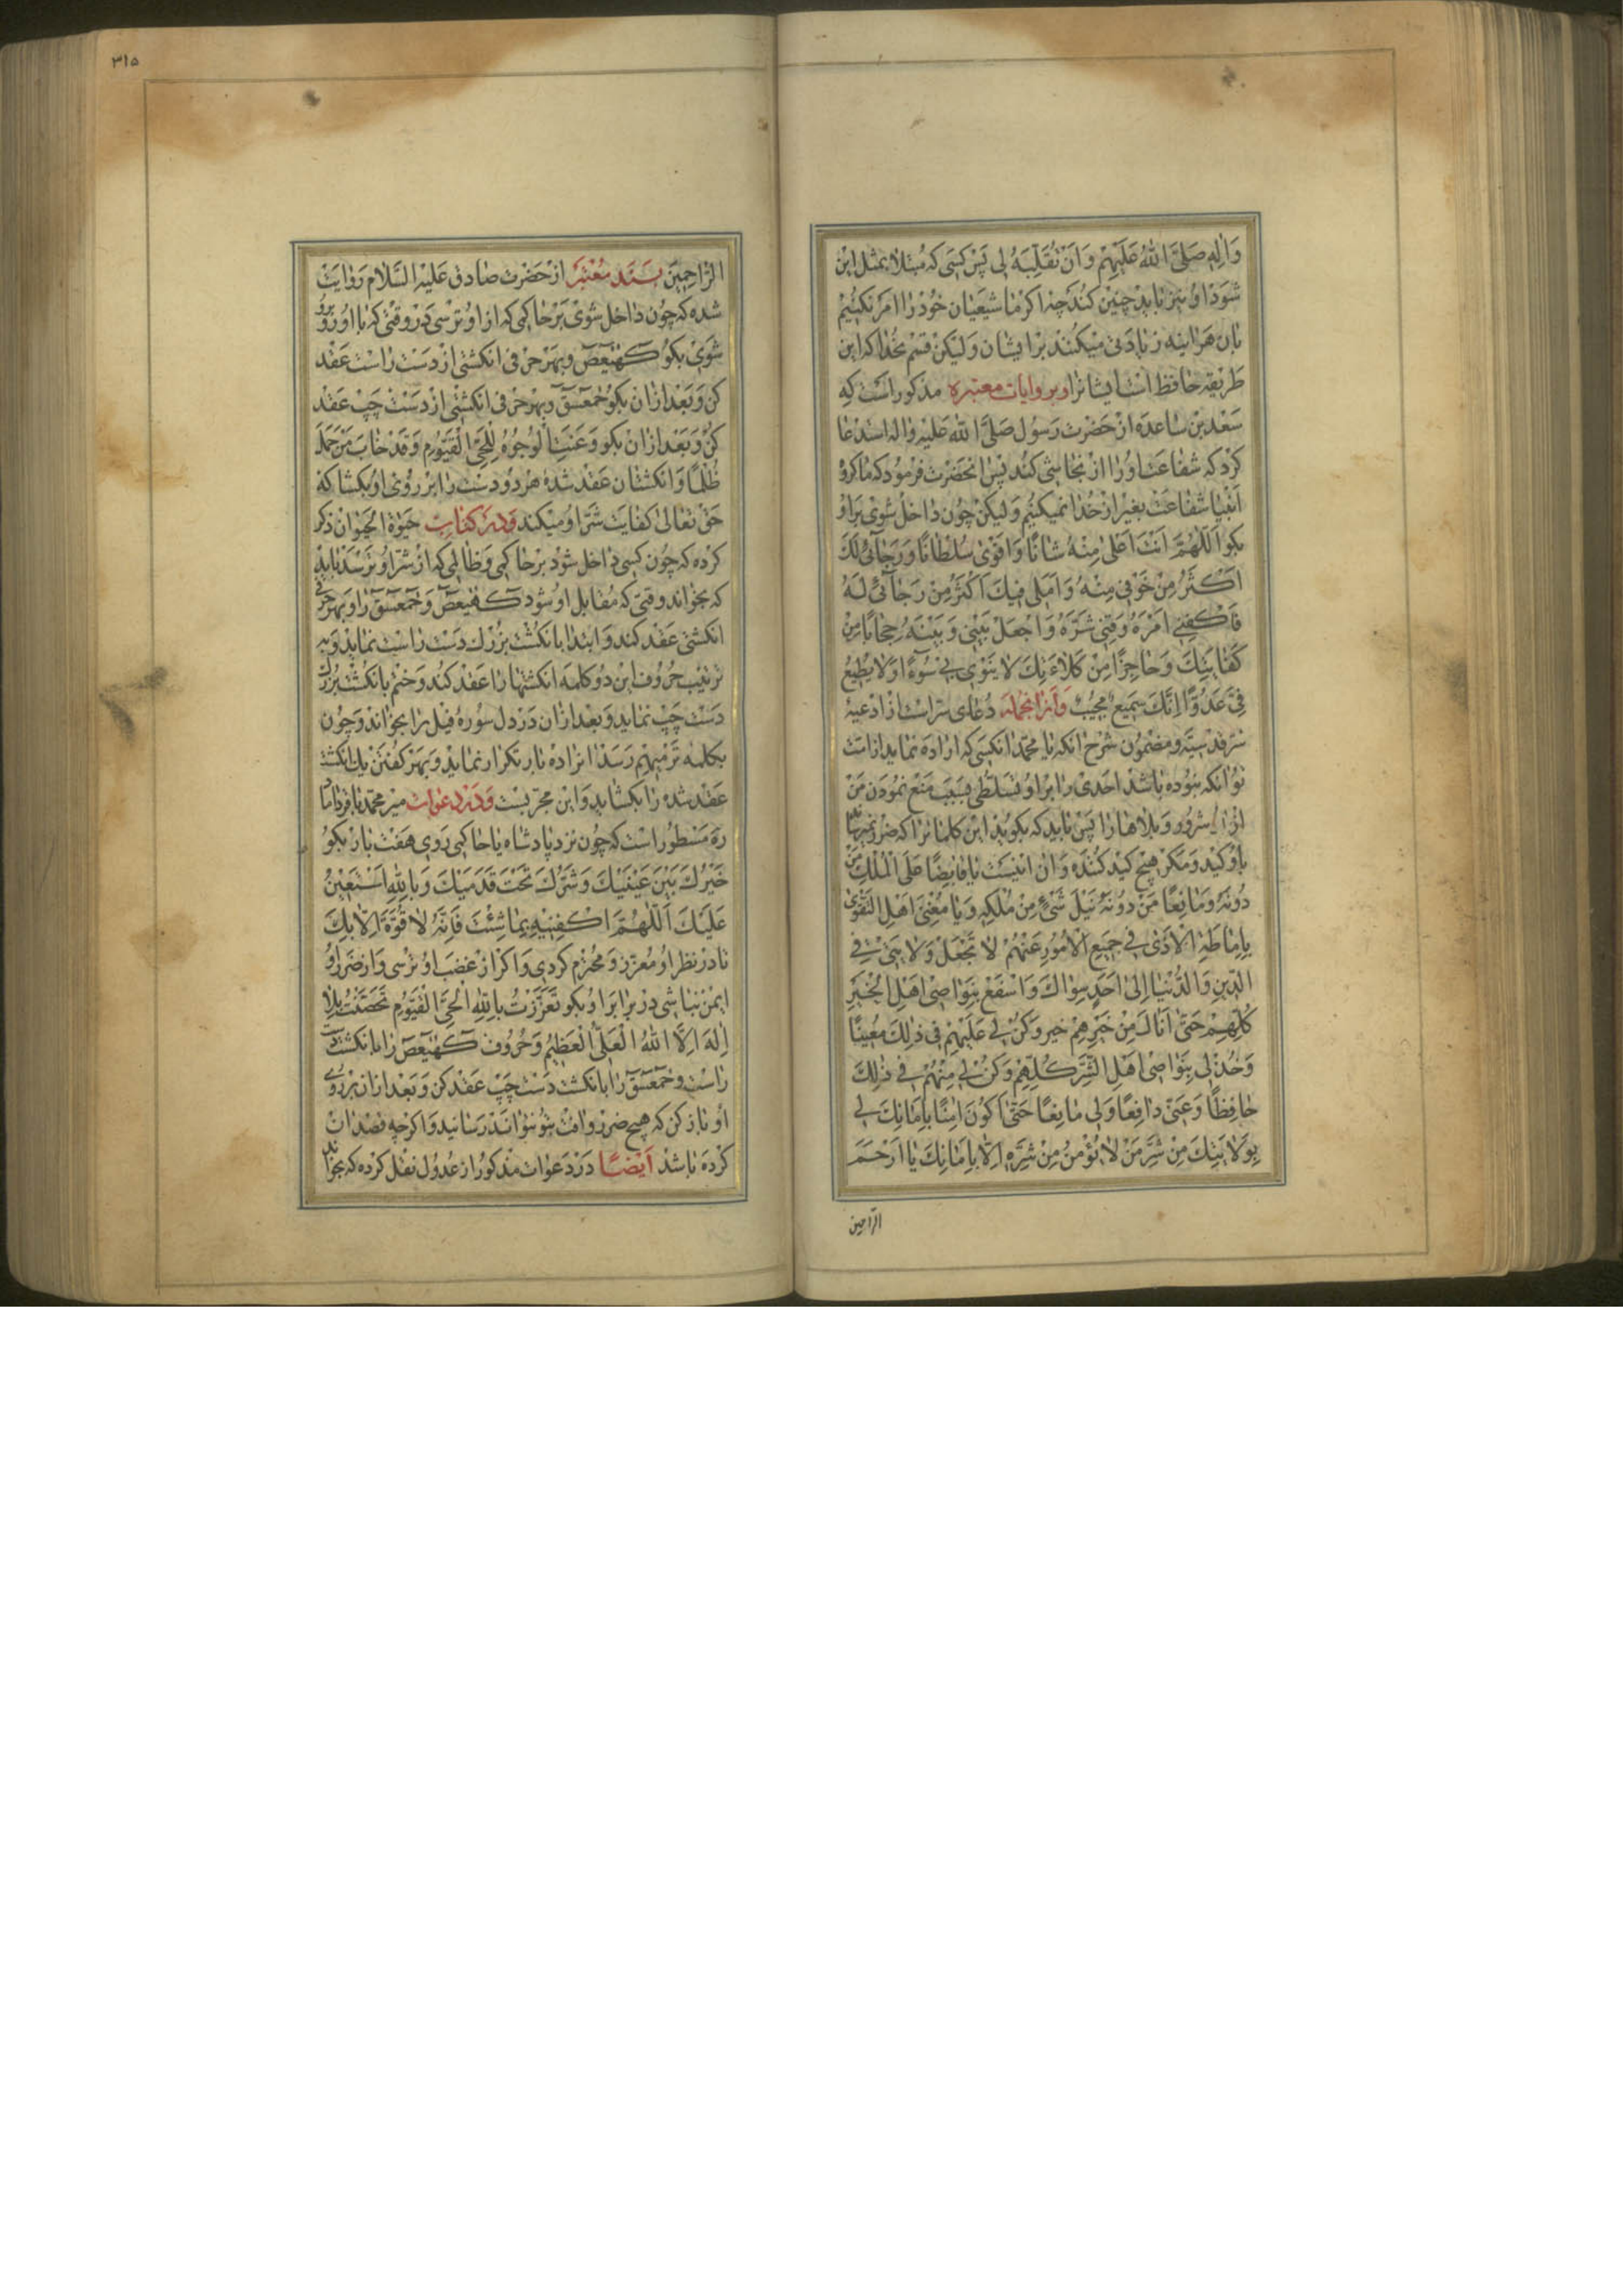 وَالِهِ صَلَّى اللّٰهُ عَلَيْهِمْ وَاَنْ تُقَلِّبَهُ لى پَسْ كسَى كه مُبتلا بمثل اين
شوَد او نيز بايد چنين كند چه اكر ما شيعيان خود را امر نكنيم
بان هراينه زيادتى ميكنند بر ايشان وليكن قسم بخدا كه اين
طريقه حافظ است ايشانرا و بروايات معتبره مذكور است كه
سعد بن ساعده از حضرت رسول صلّى اللّه عليه واله استدعا
كرد كه شفاعت او را از نجاشى كند پس انحضرت فرمود كه ما كروه
انبيا شفاعت بغير از خدا نميكنيم وليكن چون داخل شوى بر او
بكو اَللّٰهُمَّ اَنْتَ اَعْلىٰ مِنْهُ شَانًا وَاَقْوىٰ سُلْطَانًا وَرَجَآئى لَكَ
اَكْثَرُ مِنْ خَوْفى مِنْهُ وَاَمَلى فيكَ اَكْثَرُ مِنْ رَجَآئى لَهُ
فَاكْفِنى اَمْرَهُ وَقِنى شَرَّهُ وَاجْعَلْ بَيْنى وَبَيْنَهُ حِجَابًا مِنْ
كفايَتِكَ وَحَاجِزًا مِنْ كَلاءَتِكَ لا يَنْوى بى سُوءًا وَلا يُطيعُ
فِىَّ عَدُوًّا اِنَّكَ سَميعٌ مُجيبٌ وَازانجمله دعاى سراست از ادعيه
سر قدسيّه و مضمون شرح انكه يا محمّد انكسى كه اراده نمايد از امت
تو انكه نبوده باشد احدى را بر او تسلّطى بسبب منع نمودن من
او را از شرور و بلاها را پس بايد كه بكويد اين كلماترا كه ضرر نميرساند
باو كيد و مكر هيچ كيد كننده و ان اينست يا قابِضًا عَلَى الْمُلْكِ مَنْ
دُونَهُ وَمَانِعًا مَنْ دُونَهُ نَيْلَ شَىْءٍ مِنْ مُلْكِهِ وَيَا مُغْنِىَ اَهْلِ التَّقْوىٰ
بِاِمَاطَةِ الْاَذىٰ فى جَميعِ الْاُمُورِ عَنْهُمْ لا تَجْعَلْ وَلايَتى فِى
الدّينِ وَالدُّنْيَا اِلىٰ اَحَدٍ سِوَاكَ وَاسْفَعْ بِنَوَاصى اَهْلِ الْخَيْرِ
كُلِّهِمْ حَتّىٰ اَنَالَ مِنْ خَيْرِهِمْ خير وَكُنْ لى عَلَيْهِمْ فى ذٰلِكَ مُعينًا
وَخُذْ لى بِنَوَاصى اَهْلِ الشَّرِّ كُلِّهِمْ وَكُنْ لى مِنْهُمْ فى ذٰلِكَ
حَافِظًا وَعَنّى دَافِعًا وَلى مَانِعًا حَتّىٰ اَكُونَ اٰمِنًا بِاَمَانِكَ لى
بِوَلايَتِكَ مِنْ شَرِّ مَنْ لا يُؤْمَنُ مِنْ شَرِّهِ اِلّا بِاَمَانِكَ يَا اَرْحَمَ
الرّاحمين
٣١٥
الرّاحِمينَ بسند معتبر از حضرت صادق عليه السّلام روايت
شده كه چون داخل شوى بر حاكمى كه از او ترسى در وقتى كه با او رو برو
شوى بكو كهٰيٰعص و بهر حرفى انكشتى از دست راست عقد
كن و بعد از ان بكو حٰمعسق و بهر حرفى انكشتى از دست چپ عقد
كن و بعد از ان بكو وَعَنَتِ الْوُجُوهُ لِلْحَىِّ الْقَيُّومِ وَقَدْ خَابَ مَنْ حَمَلَ
ظُلْمًا و انكشتان عقد شده هر دو دست را بر روى او بكشا كه
حق تعالى كفايت شرّ او ميكند و در كتاب حيوٰة الحيوان ذكر
كرده كه چون كسى داخل شود بر حاكمى و ظالمى كه از شرّ او ترسد بايد
كه بخواند وقتى كه مقابل او شود كهٰيٰعص و حٰمعسق را و بهر حرفى
انكشتى عقد كند و ابتدا بانكشت بزرك دست راست نمايد و به
ترتيب حروف اين دو كلمه انكشتها را عقد كند و ختم بانكشت بزرك
دست چپ نمايد و بعد از ان در دل سوره فيل را بخواند و چون
بكلمه تَرْميهِمْ رسد انرا ده بار تكرار نمايد و بهر كفتن يك انكشت
عقد شده را بكشايد و اين مجربست و در دعوات مير محمّد باقر داماد
ره مسطور است كه چون نزد پادشاه يا حاكمى روى هفت بار بكو
خَيْرُكَ بَيْنَ عَيْنَيْكَ وَشَرُّكَ تَحْتَ قَدَمَيْكَ وَبِاللّٰهِ اَسْتَعينُ
عَلَيْكَ اَللّٰهُمَّ اكْفِنيهِ بِمَا شِئْتَ فَاِنَّهُ لا قُوَّةَ اِلّا بِكَ
تا در نظر او معزّز و محترم كردى و اكر از غضب او ترسى و از ضرر او
ايمن نباشى در برابر او بكو تَعَزَّزْتُ بِاللّٰهِ الْحَىِّ الْقَيُّومِ تَحَصَّنْتُ بِلا
اِلٰهَ اِلَّا اللّٰهُ الْعَلِىُّ الْعَظيمُ و حروف كهٰيٰعص را بانكشت دست
راست و حٰمعسق را بانكشت دست چپ عقد كن و بعد از ان بر روى
او باز كن كه هيچ ضرر و افت بتو نتواند رسانيد و اكر چه قصد ان
كرده باشد اَيضًا در دعوات مذكور از عدول نقل كرده كه بخواند